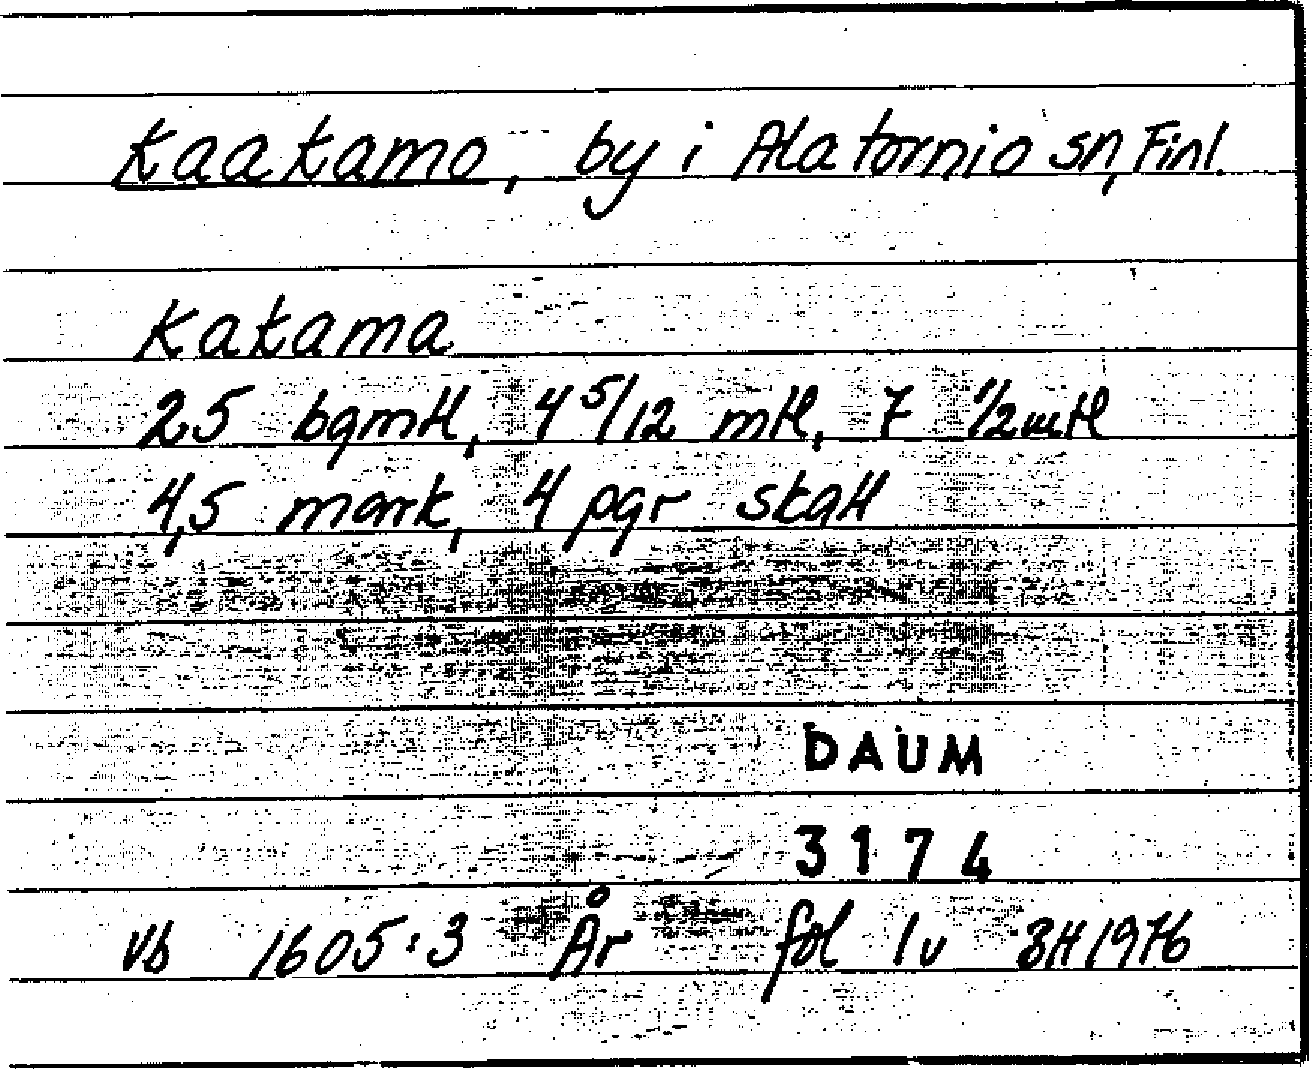 Kaakamo, by i Alatornio sn, Finl.
Kakama
25 bgmtl, 4 5/12 mtl, 7 1/2 mtl
4,5 mark, 4 pgr skatt
DAUM
3174
Vb 1605:3 År fol 1v BH 1976